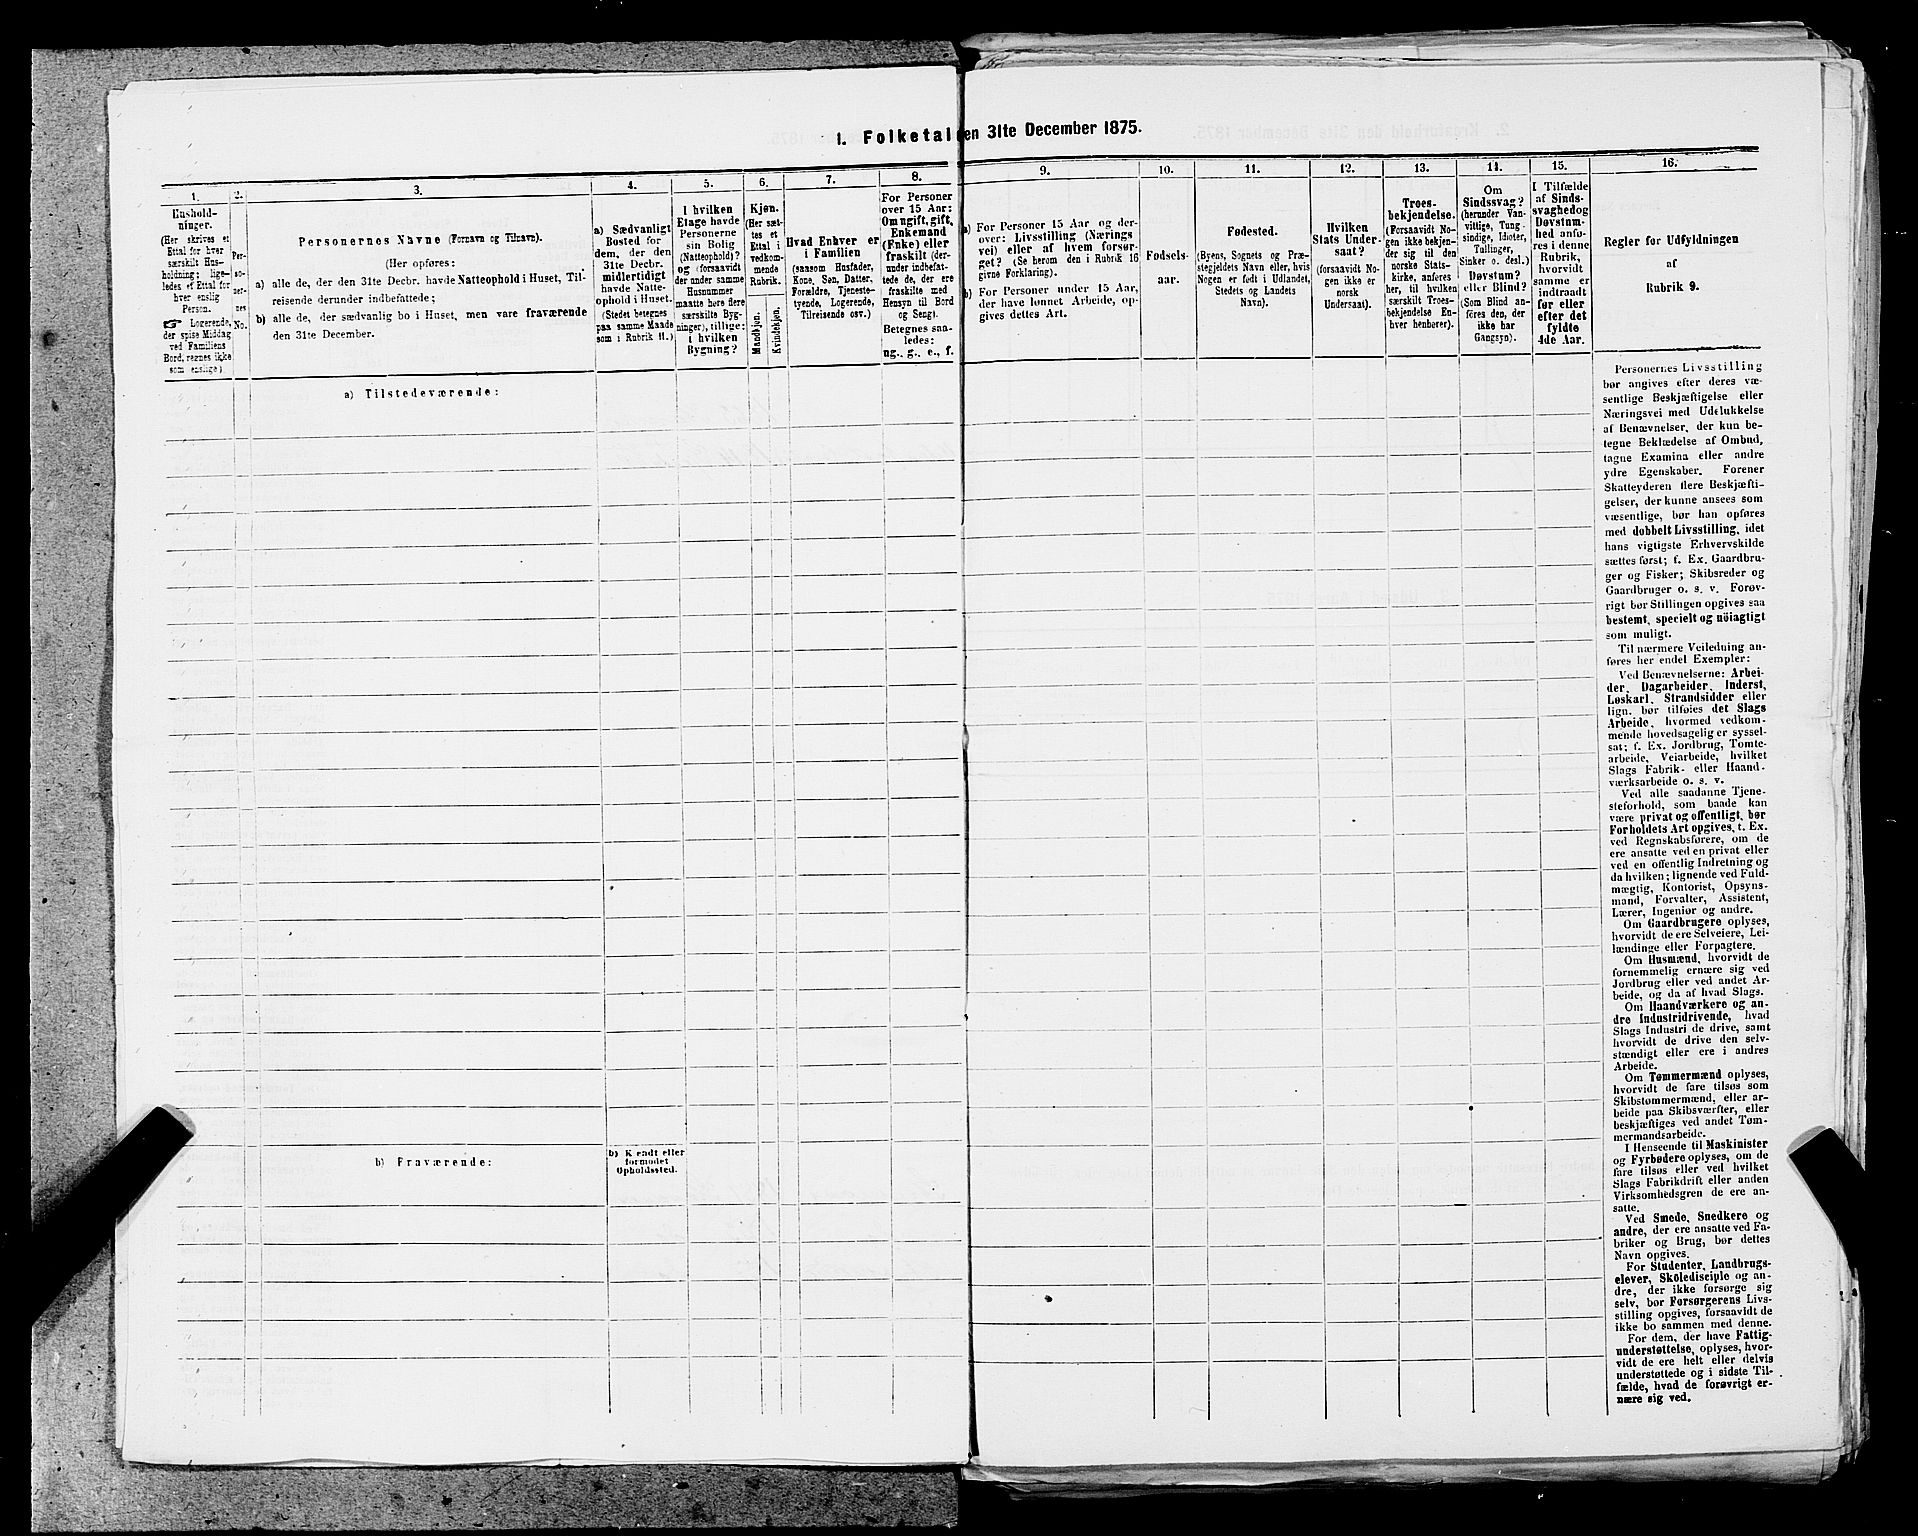 1. Folketal den 31te December 1875.
1.
Hushold-
ninger.
(Her skrives et
Ettal for hver
særskilt Hus-
holdning; lige-
ledes et Ettal for
hver enslig
Person.
☞ Logerende,
der spise Middag
ved Familiens
Bord, regnes ikke
som enslige)
2.
Per-
so-
ner-
nes
No.
3.
Personernes Navne (Fornavn og Tilnavn).
(Her opføres:
a) alle de, der den 31te Decbr. havde Natteophold i Huset, Til-
reisende derunder indbefattede;
b) alle de, der sædvanlig bo i Huset, men vare fraværende
den 31te December.
4.
a) Sædvanligt
Bosted for
dem, der den
31te Decbr.
midlertidigt
havde Natte-
ophold i Huset.
(Stedet betegnes
paa samme Maade
som i Rubrik 11.)
5.
I hvilken
Etage havde
Personerne
sin Bolig
(Natteophold)?
og (forsaavidt
der under samme
Husnummer
maatte høre flere
særskilte Byg-
ninger), tillige:
i hvilken
Bygning?
6.
Kjøn.
(Her sæt-
tes et
Ettal i
vedkom-
mende
Rubrik.
Mandkjøn.
Kvindekjøn.
7.
Hvad Enhver er
i Familien
(saasom Husfader,
Kone, Søn, Datter,
Forældre, Tjeneste-
tyende, Logerende,
Tilreisende osv.)
8.
For Personer
over 15 Aar:
Om ugift, gift,
Enkemand
(Enke) eller
fraskilt (der-
under indbefat-
tede de, der ere
fraskilte med
Hensyn til Bord
og Seng).
Betegnes saa-
ledes:
ug., g., e., f.
9.
a) For Personer 15 Aar og der-
over: Livsstilling (Nærings
vei) eller af hvem forsør-
get? (Se herom den i Rubrik 16
givne Forklaring).
b) For Personer under 15 Aar,
der have lønnet Arbeide, op-
gives dettes Art.
10.
Fødsels-
aar.
11.
Fødested.
(Byens, Sognets og Præ-
stegjeldets Navn eller, hvis
Nogen er født i Udlandet,
Stedets og Landets
Navn).
12.
Hvilken
Stats Under-
saat?
(forsaavidt No-
gen ikke er
norsk
Undersaat).
13.
Troes-
bekjendelse.
(Forsaavidt No-
gen ikke bekjen-
der sig til den
norske Stats-
kirke, anføres
her, til hvilken
særskilt Troes-
bekjendelse En-
hver henhører).
14.
Om
Sindssvag?
(herunder Van-
vittige, Tung-
sindige, Idioter,
Tullinger,
Sinker o. desl.)
Døvstum?
eller Blind?
(Som Blind an-
føres den, der
ikke har
Gangsyn).
15.
I Tilfælde
af Sinds-
svaghed og
Døvstum-
hed anfø-
res i denne
Rubrik,
hvorvidt
samme er
indtraadt
før eller
efter det
fyldte
4de Aar.
16.
Regler for Udfyldningen
af
Rubrik 9.
a) Tilstedeværende:
b) Fraværende:
b) Kjendt eller
formodet
Opholdssted.
Personernes Livsstilling
bør angives efter deres væ-
sentlige Beskjæftigelse eller
Næringsvei med Udelukkelse
af Benævnelser, der kun be-
tegne Beklædelse af Ombud,
tagne Examina eller andre
ydre Egenskaber. Forener
Skatteyderen flere Beskjæfti-
gelser, der kunne ansees som
væsentlige, bør han opføres
med dobbelt Livsstilling, idet
hans vigtigste Erhvervskilde
sættes først; f. Ex. Gaardbru-
ger og Fisker; Skibsreder og
Gaardbruger o. s. v. Forøv-
rigt bør Stillingen opgives saa
bestemt, specielt og nöiagtigt
som muligt.
Til nærmere Veiledning an-
føres her endel Exempler:
Ved Benævnelserne: Arbei-
der, Dagarbeider, Inderst,
Løskarl, Strandsidder eller
lign. bør tilføies det Slags
Arbeide, hvormed vedkom-
mende hovedsagelig er syssel-
sat; f. Ex. Jordbrug, Tomte-
arbeide, Veiarbeide, hvilket
Slags Fabrik- eller Haand-
værksarbeide o. s. v.
Ved alle saadanne Tjene-
steforhold, som baade kan
være privat og offentligt, bør
Forholdets Art opgives, t. Ex.
ved Regnskabsførere, om de
ere ansatte ved en privat eller
ved en offentlig Indretning og
da hvilken; lignende ved Fuld-
mægtig, Kontorist, Opsyns-
mand, Forvalter, Assistent,
Lærer, Ingeniør og andre.
Om Gaardbrugere oplyses,
hvorvidt de ere Selveiere, Lei-
lændinge eller Forpagtere.
Om Husmænd, hvorvidt de
fornemmelig ernære sig ved
Jordbrug eller ved andet Ar-
beide, og da af hvad Slags.
Om Haandværkere og an-
dre Industridrivende, hvad
Slags Industri de drive, samt
hvorvidt de drive den selv-
stændigt eller ere i andres
Arbeide.
Om Tømmermænd oplyses,
hvorvidt de fare tilsøs som
Skibstømmermænd, eller ar-
beide paa Skibsværfter, eller
beskjæftiges ved andet Tøm-
mermandsarbeide.
I Henseende til Maskinister
og Fyrbødere oplyses, om de
fare tilsøs eller ved hvilket
Slags Fabrikdrift eller anden
Virksomhedsgren de ere an-
satte.
Ved Smede, Snedkere og
andre, der ere ansatte ved Fa-
briker og Brug, bør dettes
Navn opgives.
For Studenter, Landbrugs-
elever, Skoledisciple og an-
dre, der ikke forsørge sig
selv, bør Forsørgerens Livs-
stilling opgives, forsaavidt de
ikke bo sammen med denne.
For dem, der have Fattig-
understøttelse, oplyses, hvor-
vidt de ere helt eller delvis
understøttede og i sidste Til-
fælde, hvad de forøvrigt er-
nære sig ved.